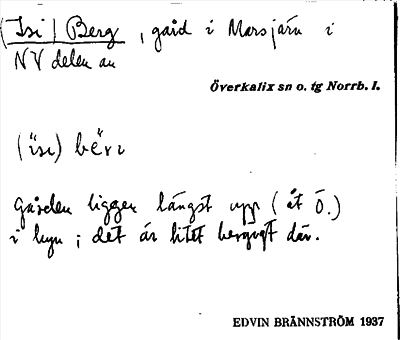 (Isi) Berg, gård i Marsjärv i
NV delen av
Överkalix sn o. tg Norrb. l.
(ïsı) bë́rı
Gården ligger längst upp (åt Ö.)
i byn; det är litet bergigt där.
EDVIN BRÄNNSTRÖM 1937